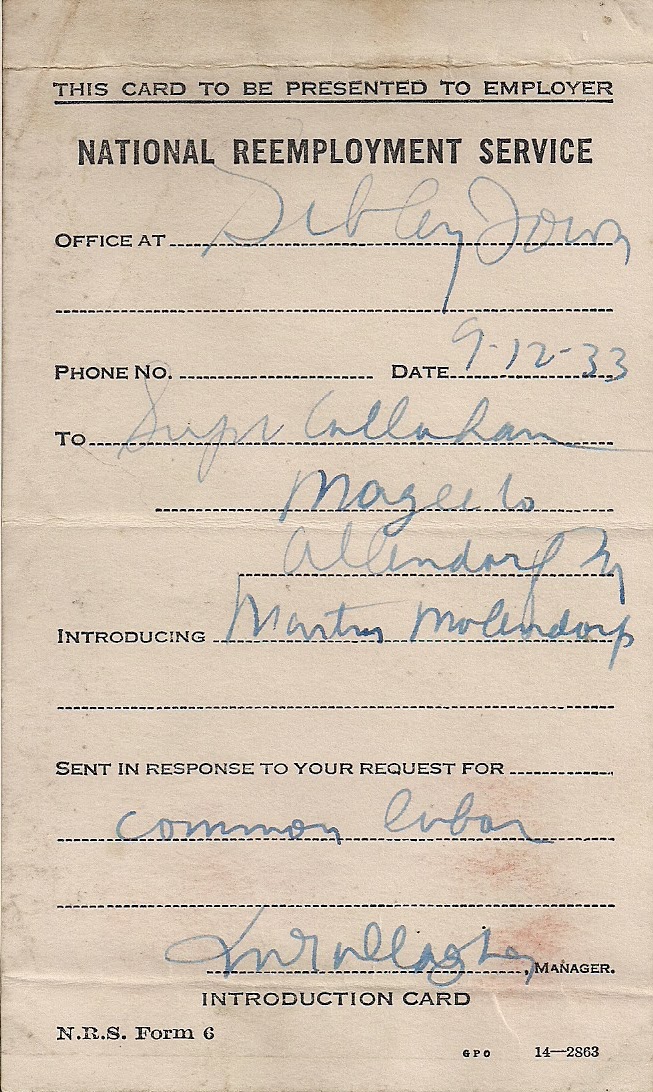 THIS CARD TO BE PRESENTED TO EMPLOYER
NATIONAL REEMPLOYMENT SERVICE
OFFICE AT Sibley Iowa
PHONE NO. DATE 9-12-33
TO Supt Callahan
Magee Co
Allendorf
INTRODUCING Martin Molendorp
SENT IN RESPONSE TO YOUR REQUEST FOR
common labor
Gallagher, MANAGER.
INTRODUCTION CARD
N.R.S. Form 6
GPO 14—2863